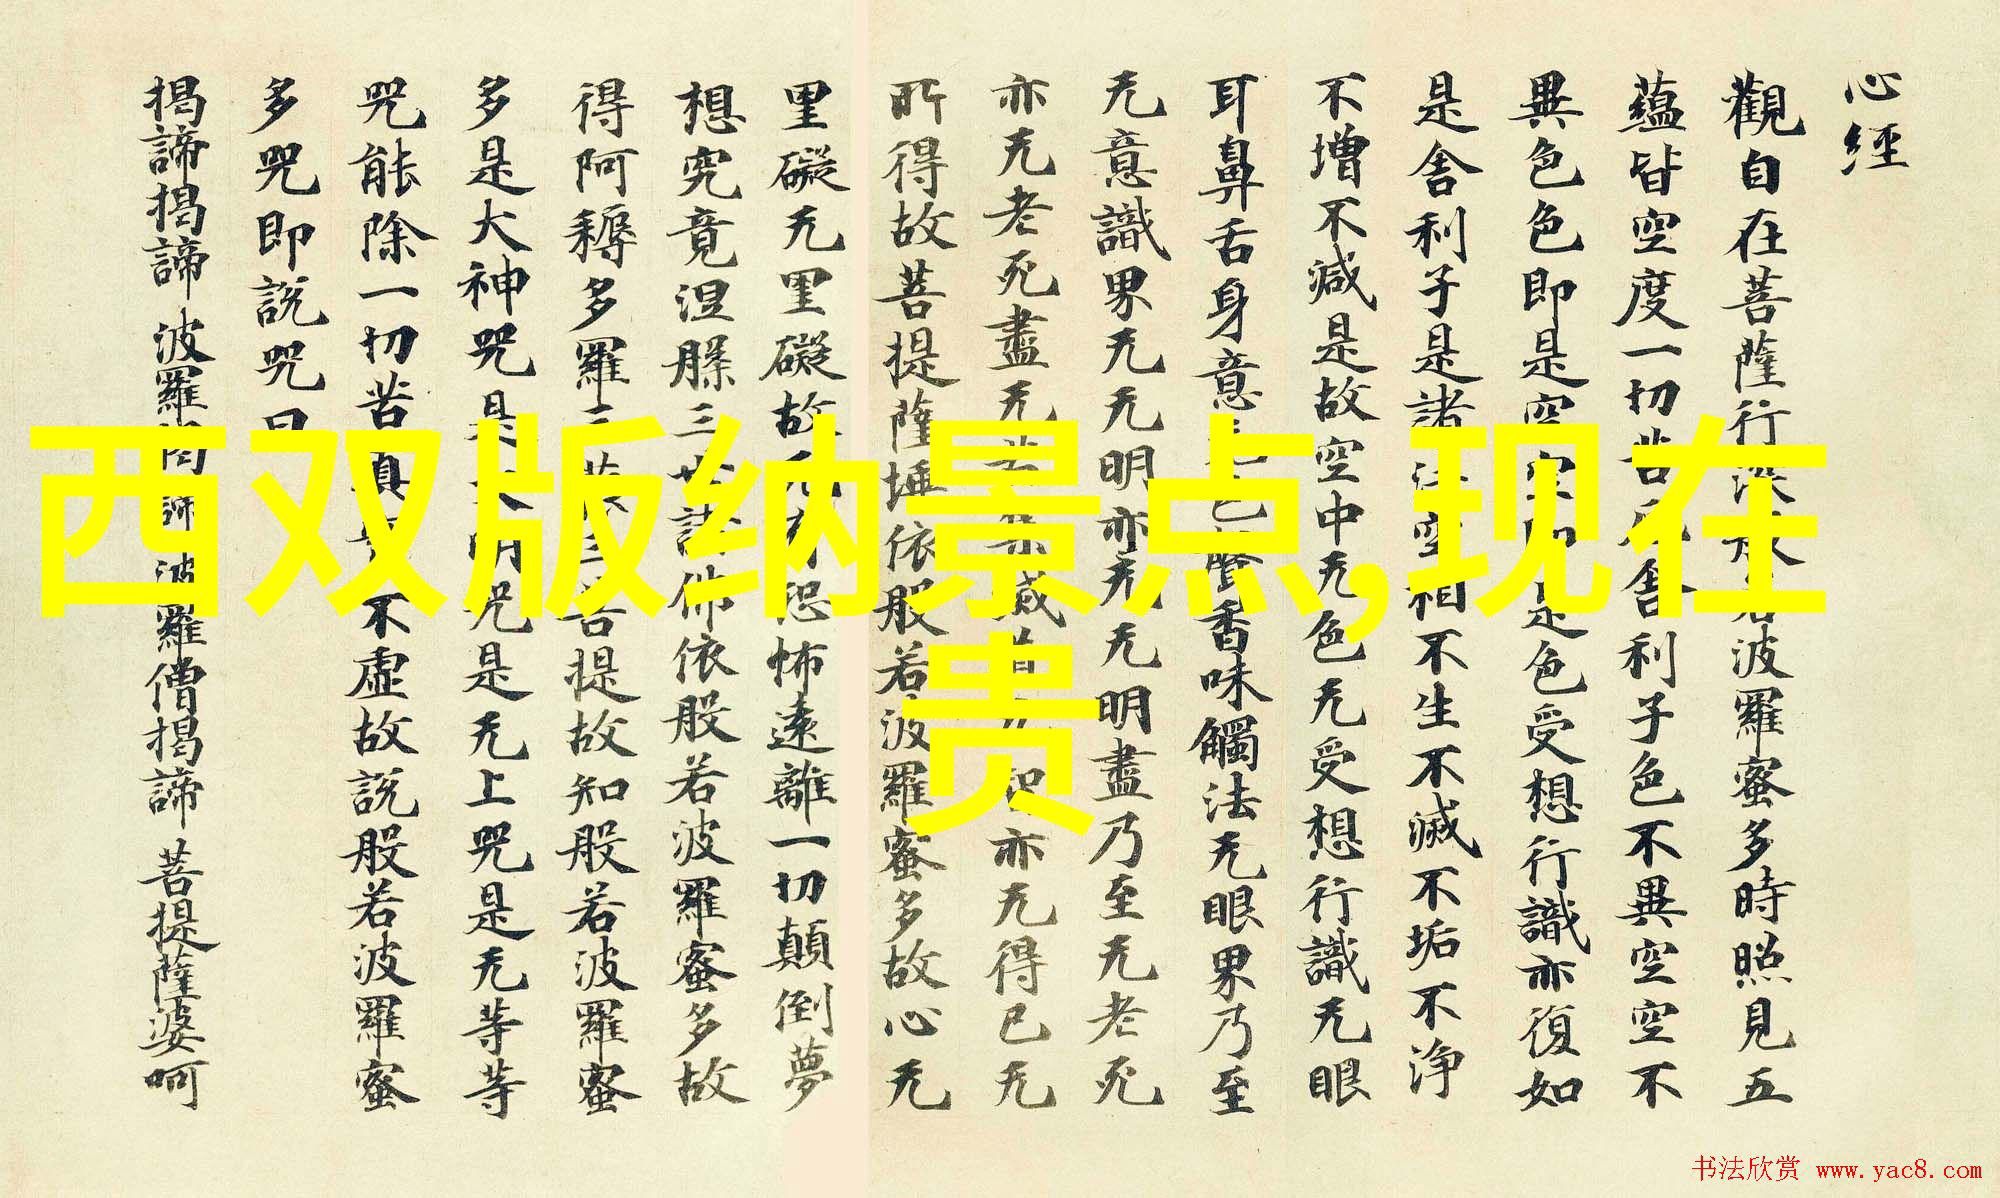 心經
觀自在菩薩行深般若波羅蜜多時照見五
蘊皆空度一切苦厄舍利子色不異空空不
異色色即是空空即是色受想行識亦復如
是舍利子是諸法空相不生不滅不垢不淨
不增不減是故空中无色无受想行識无眼
耳鼻舌身意无色聲香味觸法无眼界乃至
无意識界无无明亦无无明盡乃至无老死
亦无老死盡无苦集滅道无智亦无得已无
所得故菩提薩埵依般若波羅蜜多故心无
罣礙无罣礙故无有恐怖遠離一切顛倒夢
想究竟涅槃三世諸佛依般若波羅蜜多故
得阿耨多羅三藐三菩提故知般若波羅蜜
多是大神咒是大明咒是无上咒是无等等
咒能除一切苦真實不虛故說般若波羅蜜
多咒即說咒曰
揭諦揭諦 波羅揭諦 波羅僧揭諦 菩提薩婆呵
西双版纳景点,现在
贵
书法欣赏 www.yac8.com